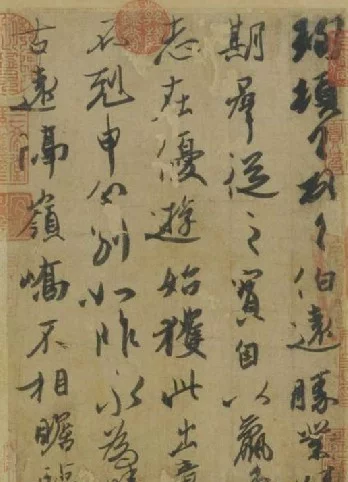 珣頓首頓首伯遠勝業
期羣從之寶自以羸
志在優遊始獲此出意
不剋申分別如昨永為
古遠隔嶺嶠不相瞻臨